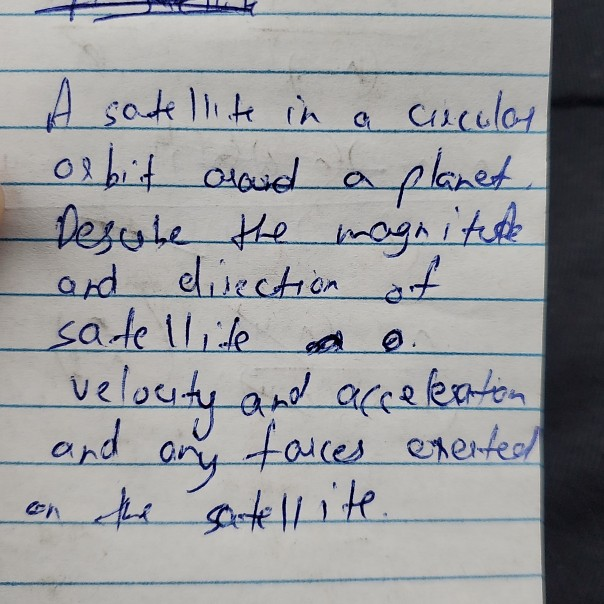 A satellite in a circular
orbit aroud a planet.
Describe the magnitude
and direction of
satellite
velocity and acceleration
and any forces exerted
on the satellite.